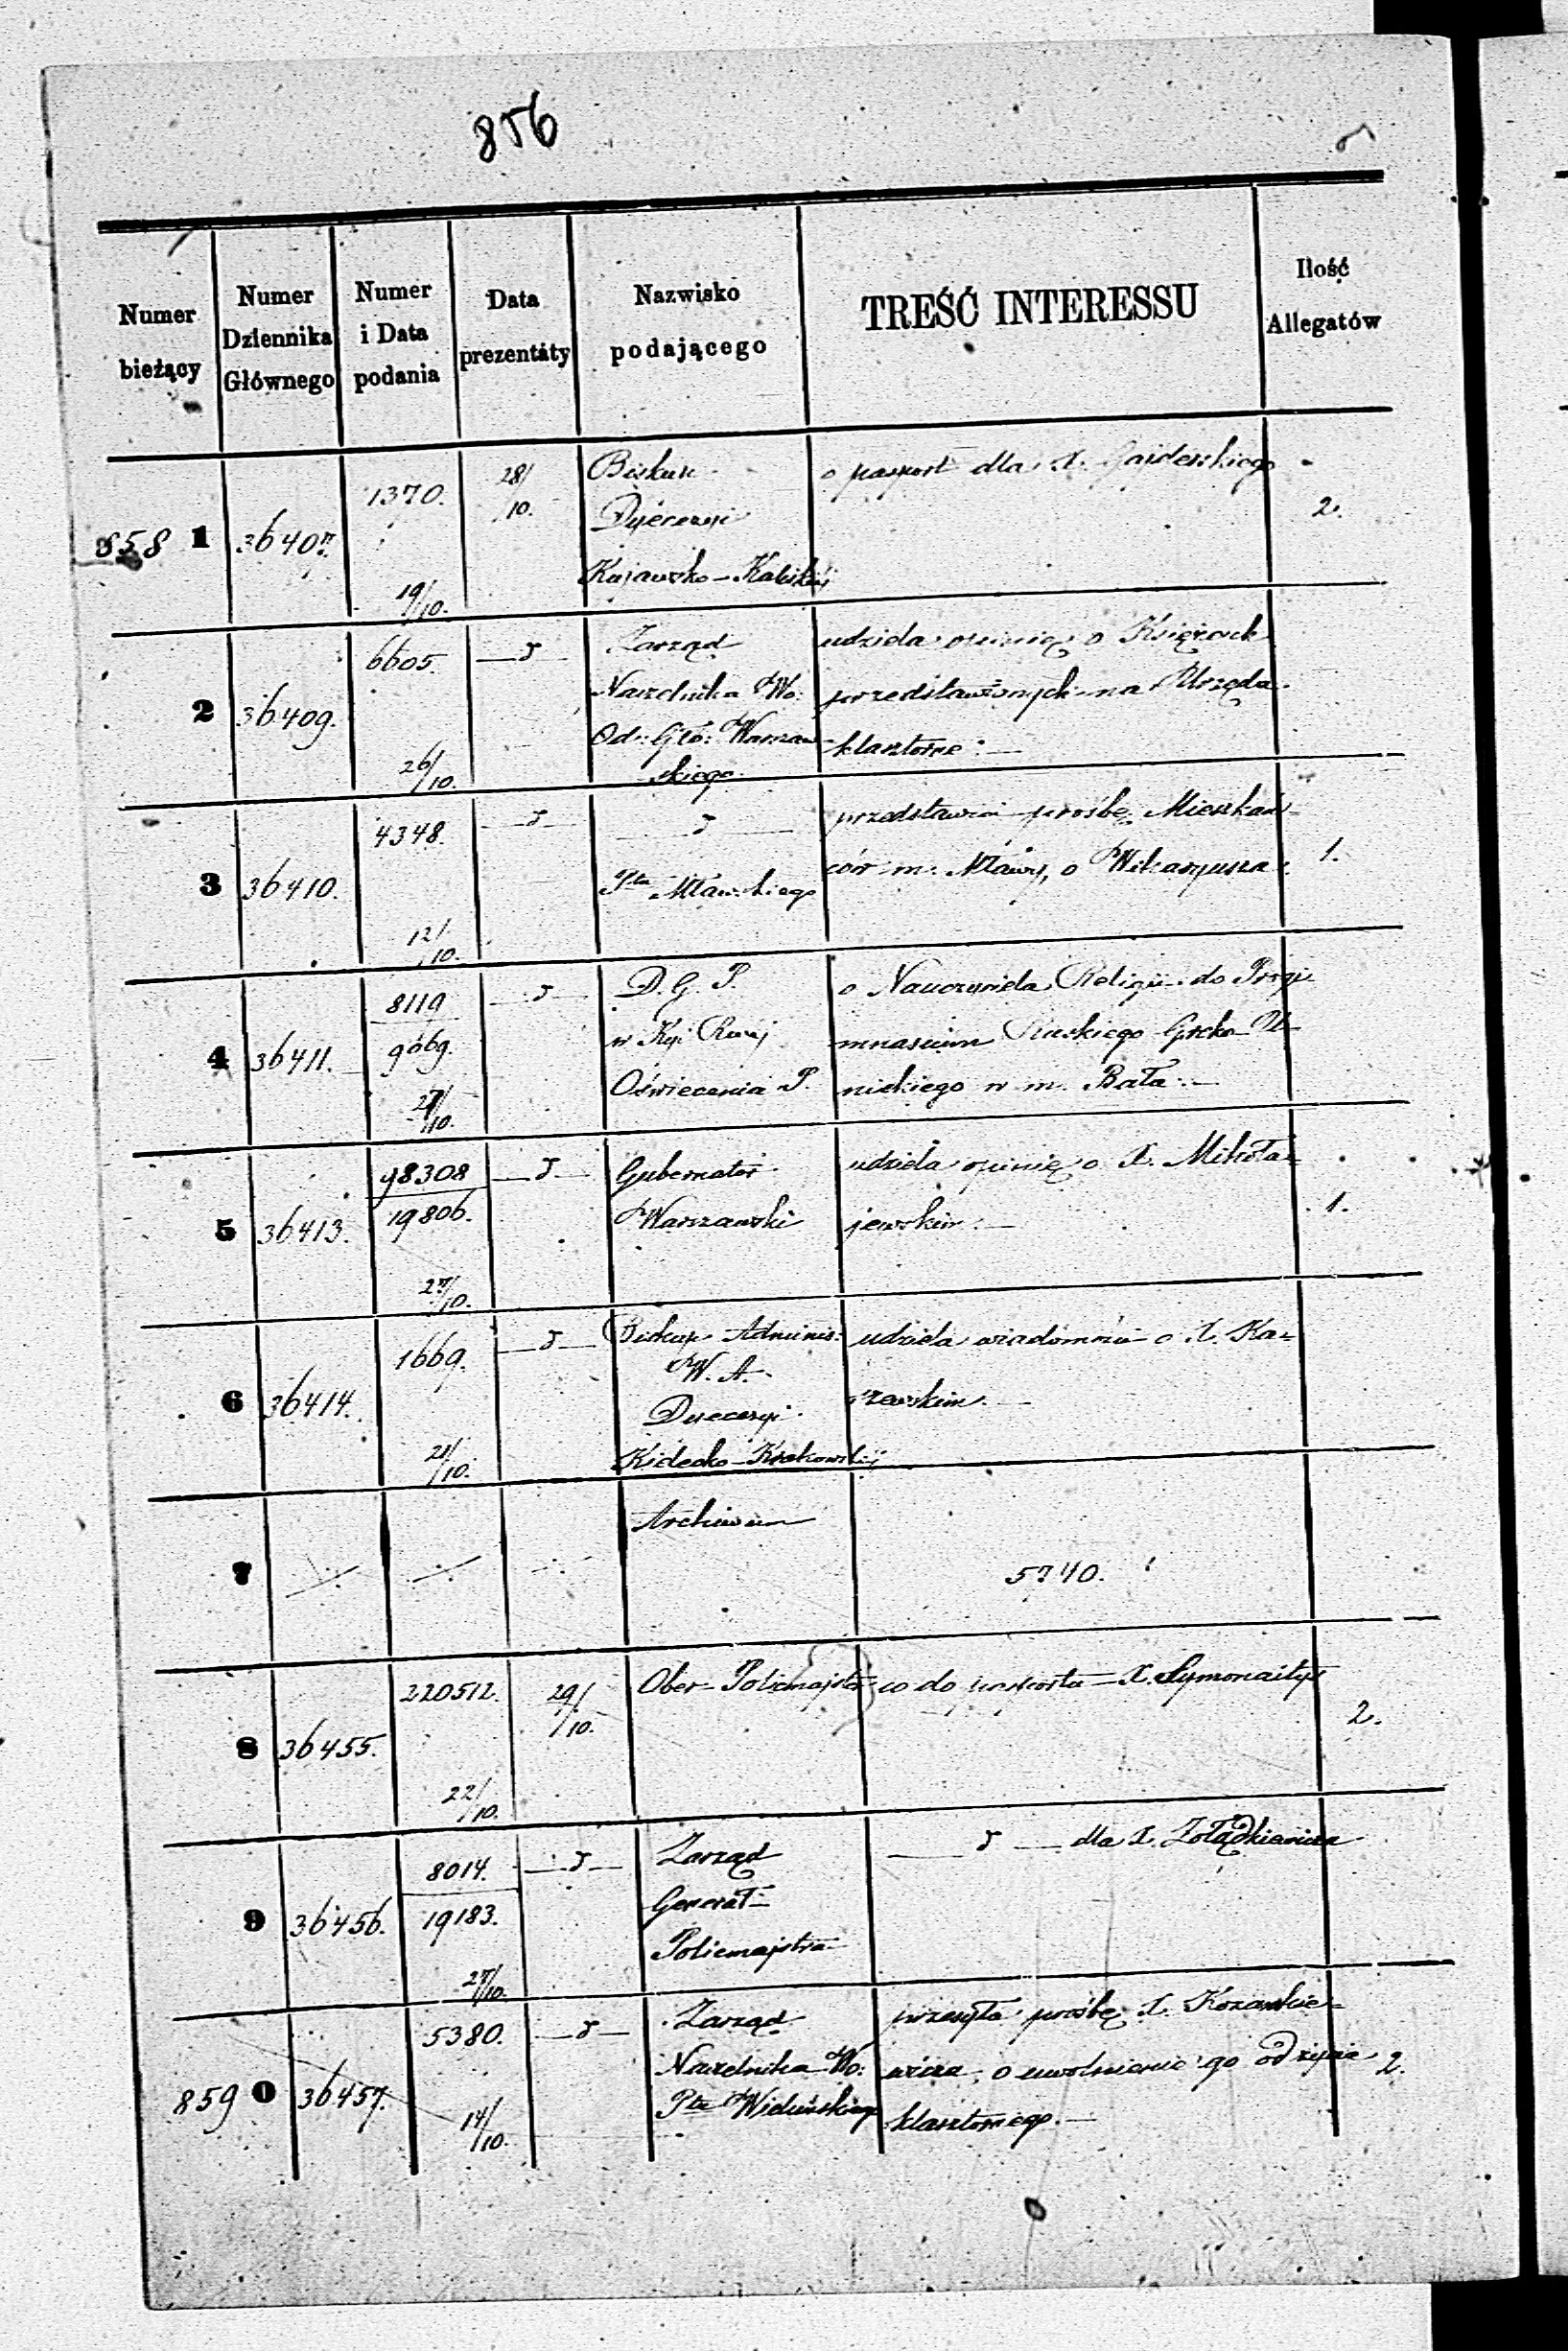 856
Numer bieżący | Numer Dziennika Głównego | Numer i Data podania | Data prezentáty | Nazwisko podającego | TREŚĆ INTERESSU | Ilość Allegatów
858 1 | 36407. | 1370. 19/10. | 28/10. | Biskup | o paszport dla X. Gajderskiego | 2.
Dyecezyi
Kujawsko-Kaliskiéj
2 | 36409. | 6605. 26/10. | —d— | Zarząd | udziela opinię o Księżach
Naczelnika Wo: | przedstawionych na Urzęda
Od: Głó: Warszaw- | klasztorne:—
skiego
3 | 36410. | 4348. 12/10. | —d— | —d— | przedstawia prośbę Mieszkań-
Ptu Mławskiego | ców m. Mławy, o Wikaryusza. | 1.
4 | 36411. | 8119 | —d— | D. G. P. | o Nauczyciela Religii do Progi-
9669. | w Kys Rząj | mnasium Ruskiego Grko-U-
27/10. | Oświecenia P. | nickiego w m. Bała.—
5 | 36413. | 98308 | —d— | Gubernator | udziela opinię o X. Mikoła-
19806. | Warszawski | jewskim.— | 1.
27/10.
6 | 36414. | 1669. 21/10. | —d— | Biskup Adminis: | udziela wiadomość o X. Ka-
W. A. | czewskim.—
Dyecezyi
Kielecko-Krakowskiéj
7 | Archiwum | 5740.
8 | 36455. | 220512. 22/10. | 29/10. | Ober-Policmajster | co do paszportu—X. Symonaitys | 2.
9 | 36456. | 8014. | —d— | Zarząd | —d— dla X. Żołądkiewicza
19183. | Generał-
27/10. | Policmajstra
859 0 | 36457. | 5380. 14/10. | —d— | Zarząd | przesyła prośbę X. Kozankie-
Naczelnika Wo: | wicza, o uwolnienie go od życia | 2.
Ptu Wieluńskiego | klasztornego.—